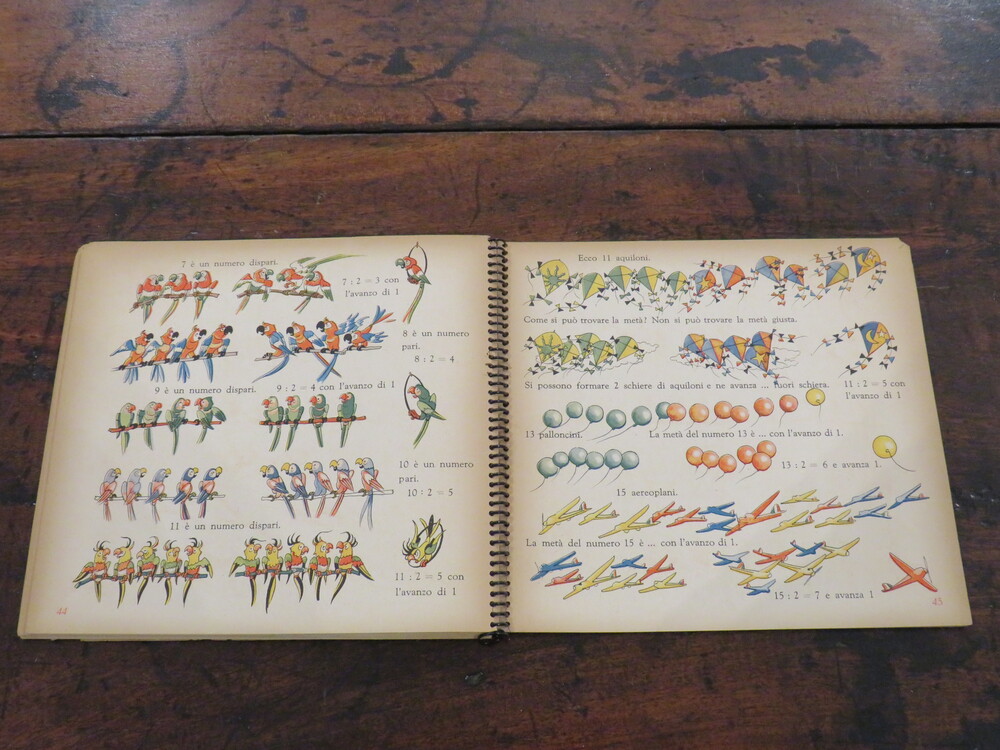 7 è un numero dispari.
7 : 2 = 3 con
l'avanzo di 1
8 è un numero
pari.
8 : 2 = 4
9 è un numero dispari.
9 : 2 = 4 con l'avanzo di 1
10 è un numero
pari.
10 : 2 = 5
11 è un numero dispari.
11 : 2 = 5 con
l'avanzo di 1
44
Ecco 11 aquiloni.
Come si può trovare la metà? Non si può trovare la metà giusta.
Si possono formare 2 schiere di aquiloni e ne avanza ... fuori schiera.
11 : 2 = 5 con
l'avanzo di 1
13 palloncini.
La metà del numero 13 è ... con l'avanzo di 1.
13 : 2 = 6 e avanza 1.
15 aereoplani.
La metà del numero 15 è ... con l'avanzo di 1.
15 : 2 = 7 e avanza 1
45